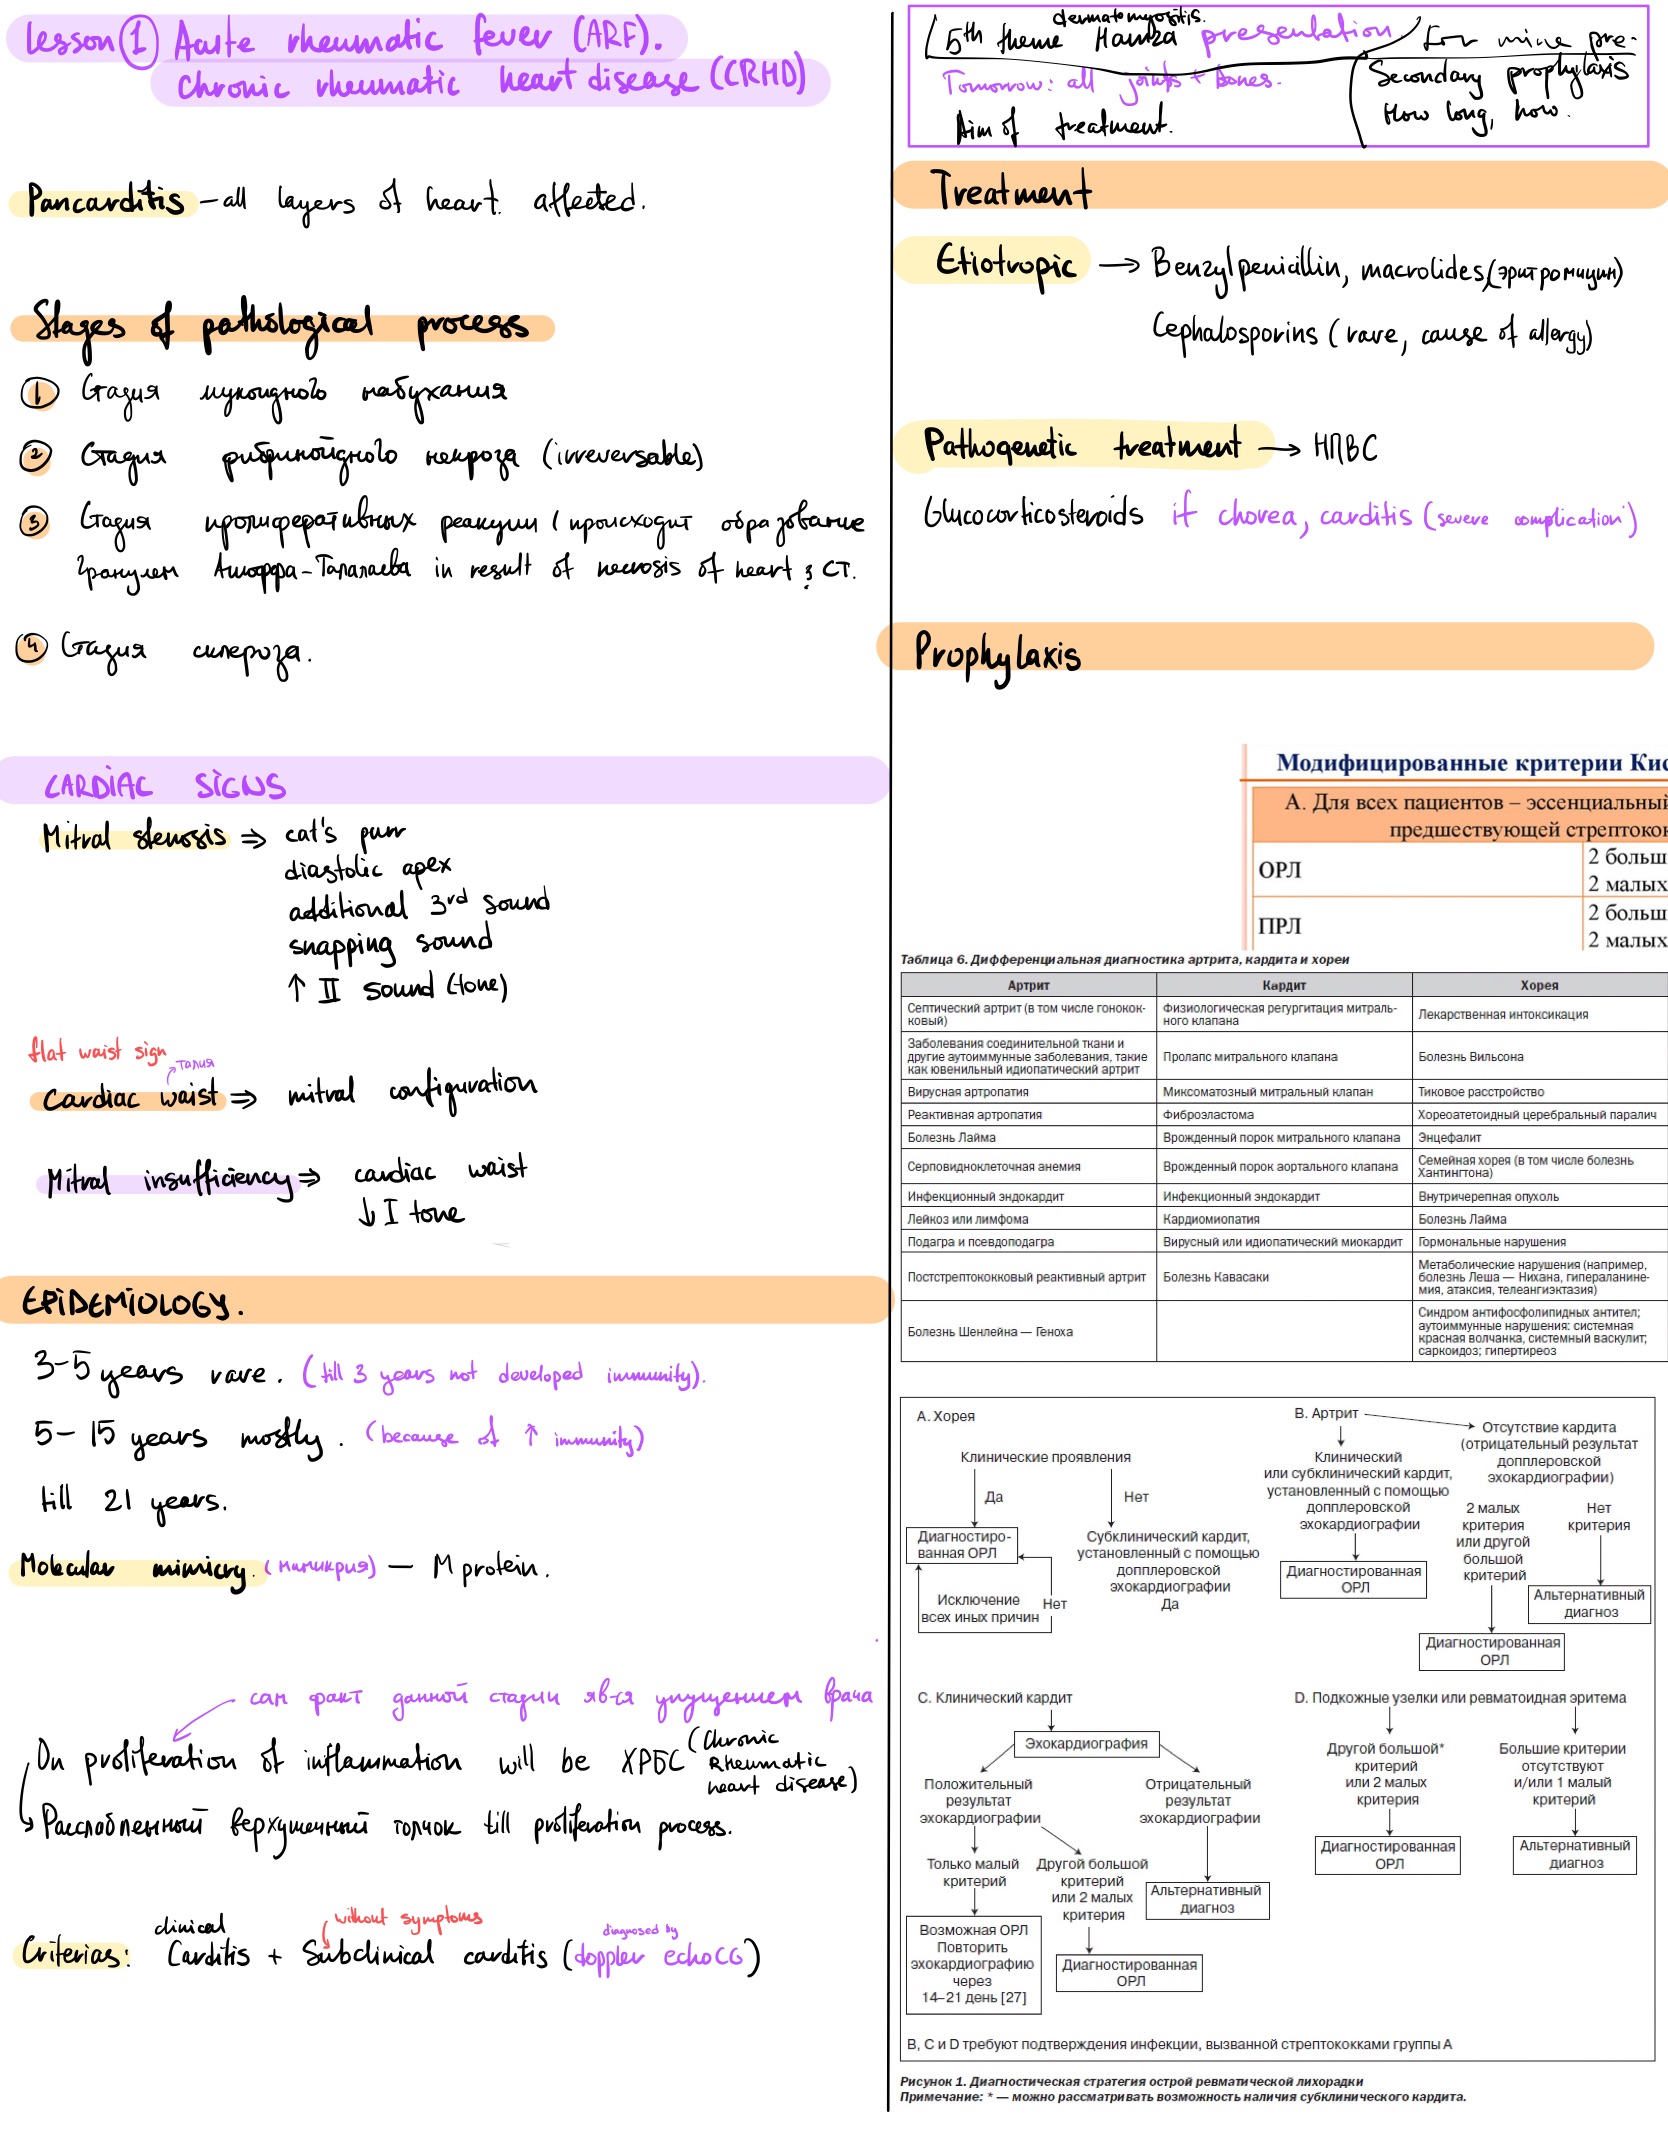 Lesson 1 Acute rheumatic fever (ARF).
Chronic rheumatic heart disease (CRHD)
Pancarditis – all layers of heart affected.
Stages of pathological process
1 Стадия мукоидного набухания
2 Стадия фибриноидного некроза (irreversable)
3 Стадия пролиферативных реакции (происходит образование
гранулем Ашоффа-Талалаева in result of necrosis of heart & CT.
4 Стадия склероза.
CARDIAC SIGNS
Mitral stenosis ⇒ cat's purr
diastolic apex
additional 3rd sound
snapping sound
↑ II sound (tone)
flat waist sign
талия
Cardiac waist ⇒ mitral configuration
Mitral insufficiency ⇒ cardiac waist
↓ I tone
EPIDEMIOLOGY.
3-5 years rare. (till 3 years not developed immunity).
5-15 years mostly. (because of ↑ immunity)
till 21 years.
Molecular mimicry. (мимикрия) — M protein.
сам факт данной стадии явся упущением врача
On proliferation of inflammation will be ХРБС (Chronic
Rheumatic
heart disease)
Расслабленный верхушечный толчок till proliferation process.
clinical
without symptoms
diagnosed by
Criterias: Carditis + Subclinical carditis (doppler echoCG)
dermatomyositis.
5th theme Hamza presentation
For mine pre-
Tomorrow: all joints + bones.
Secondary prophylaxis
How long, how.
Aim of treatment.
Treatment
Etiotropic → Benzylpenicillin, macrolides,(эритромицин)
Cephalosporins (rare, cause of allergy)
Pathogenetic treatment → НПВС
Glucocorticosteroids if chorea, carditis (severe complication)
Prophylaxis
Модифицированные критерии Кис
А. Для всех пациентов – эссенциальный
предшествующей стрептокок
ОРЛ
2 больш
2 малых
ПРЛ
2 больш
2 малых
Таблица 6. Дифференциальная диагностика артрита, кардита и хореи
Артрит Кардит Хорея
Септический артрит (в том числе гонокок-
ковый)
Физиологическая регургитация митраль-
ного клапана
Лекарственная интоксикация
Заболевания соединительной ткани и
другие аутоиммунные заболевания, такие
как ювенильный идиопатический артрит
Пролапс митрального клапана
Болезнь Вильсона
Вирусная артропатия
Миксоматозный митральный клапан
Тиковое расстройство
Реактивная артропатия
Фиброэластома
Хореоатетоидный церебральный паралич
Болезнь Лайма
Врожденный порок митрального клапана
Энцефалит
Серповидноклеточная анемия
Врожденный порок аортального клапана
Семейная хорея (в том числе болезнь
Хантингтона)
Инфекционный эндокардит
Инфекционный эндокардит
Внутричерепная опухоль
Лейкоз или лимфома
Кардиомиопатия
Болезнь Лайма
Подагра и псевдоподагра
Вирусный или идиопатический миокардит
Гормональные нарушения
Постстрептококковый реактивный артрит
Болезнь Кавасаки
Метаболические нарушения (например,
болезнь Леша — Нихана, гипераланине-
мия, атаксия, телеангиэктазия)
Болезнь Шенлейна — Геноха
Синдром антифосфолипидных антител;
аутоиммунные нарушения: системная
красная волчанка, системный васкулит;
саркоидоз; гипертиреоз
А. Хорея
Клинические проявления
Да
Нет
Диагностиро-
ванная ОРЛ
Субклинический кардит,
установленный с помощью
допплеровской
эхокардиографии
Да
Исключение
всех иных причин
Нет
В. Артрит
Клинический
или субклинический кардит,
установленный с помощью
допплеровской
эхокардиографии
Диагностированная
ОРЛ
Отсутствие кардита
(отрицательный результат
допплеровской
эхокардиографии)
2 малых
критерия
или другой
большой
критерий
Нет
критерия
Альтернативный
диагноз
Диагностированная
ОРЛ
С. Клинический кардит
Эхокардиография
Положительный
результат
эхокардиографии
Отрицательный
результат
эхокардиографии
Только малый
критерий
Другой большой
критерий
или 2 малых
критерия
Альтернативный
диагноз
Возможная ОРЛ
Повторить
эхокардиографию
через
14–21 день [27]
Диагностированная
ОРЛ
D. Подкожные узелки или ревматоидная эритема
Другой большой*
критерий
или 2 малых
критерия
Большие критерии
отсутствуют
и/или 1 малый
критерий
Диагностированная
ОРЛ
Альтернативный
диагноз
В, С и D требуют подтверждения инфекции, вызванной стрептококками группы А
Рисунок 1. Диагностическая стратегия острой ревматической лихорадки
Примечание: * — можно рассматривать возможность наличия субклинического кардита.